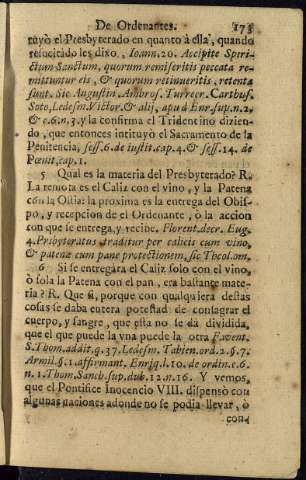 De Ordenantes. 175
tuyò el Presbyterado en quanto à ella, quando
resucitado les dixo, Ioann. 20. Accipite Spiri-
ctum Sanctum, quorum remiseritis peccata re-
mittuntur eis, & quorum retinueritis, retenta
sunt. Sic Augustin. Ambros. Turrecr. Carthus.
Soto, Ledesm. Victor. & alij, apud Enr. sup. n. 2.
& c. 6. n. 3. y la confirma el Tridentino dizien-
do, que entonces intituyò el Sacramento de la
Penitencia, sess. 6. de iustit. cap. 4. & sess. 14. de
Pœnit. cap. 1.
5 Qual es la materia del Presbyterado? R.
La remota es el Caliz con el vino, y la Patena
con la Ostia: la proxima es la entrega del Obis-
po, y recepcion de el Ordenante, ò la accion
con que se entrega, y recibe. Florent. decr. Eug.
4. Prisbyteratus traditur per calicis cum vino,
& patenæ cum pane protectionem, sic Theol. om.
6 Si se entregára el Caliz solo con el vino,
ò sola la Patena con el pan, era bastante mate-
ria? R. Que si, porque con qualquiera destas
cosas se daba entera potestad de consagrar el
cuerpo, y sangre, que esta no se dà dividida,
que el que puede la vna puede la otra Favent.
S. Thom. addit. q. 37. Ledesm. Tabien. ord. 2. §. 7.
Armil. §. 1. affirmant. Enriq. l. 10. de ordin. c. 6.
n. 1. Thom. Sanch. sup. dub. 12. n. 16. Y vemos,
que el Pontifice Inocencio VIII. dispensò con
algunas naciones adonde no se podia llevar, ò
con-